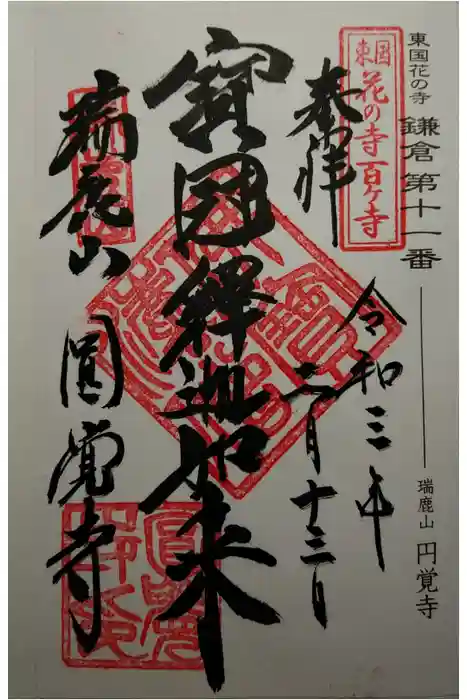 東国花の寺 鎌倉 第十一番
瑞鹿山 円覚寺
東国
花の寺百ヶ寺
奉拝
令和三年
二月十三日
寶冠釋迦如来
瑞鹿山 圓覚寺